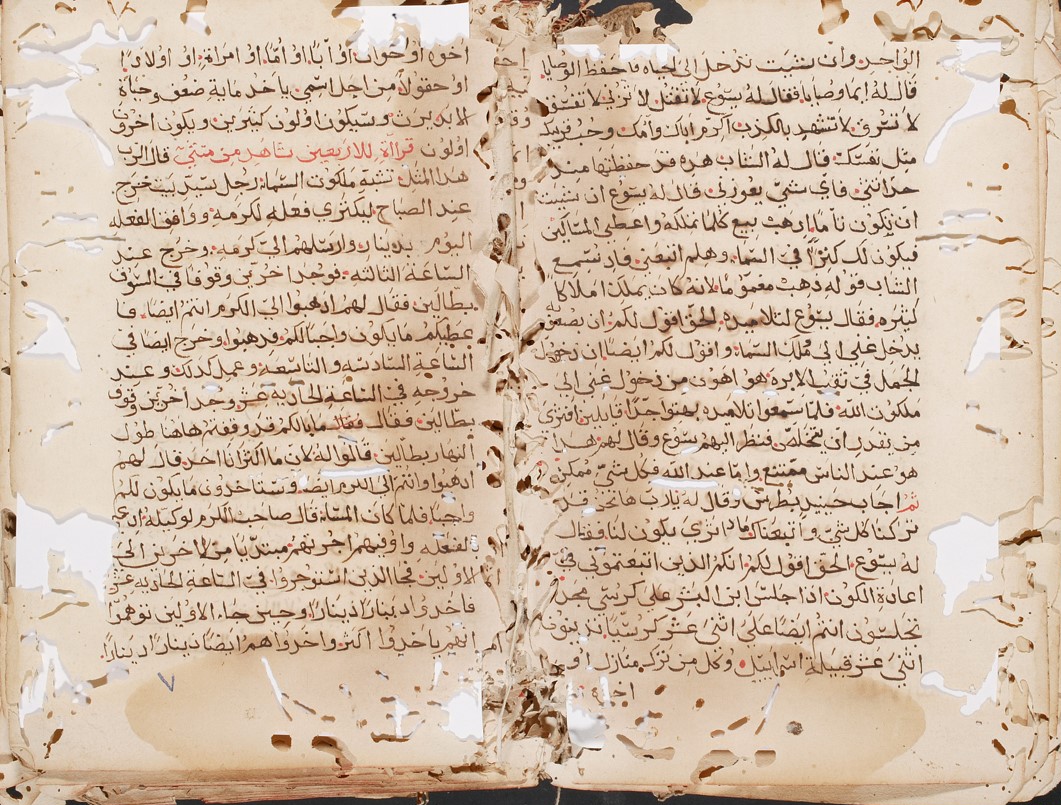 الواحد وان شيت تدخل الى الحياه فاحفظ الوصايا
قال له ايما وصايا فقال له يسوع لا تقتل لا تزني لا تفسق
لا تسرق لا تشهد بالكدب اكرم اباك وامك وحب قريبك
مثل نفسك قال له الشاب هده قد حفظتها مند
حداثتي فاي شي يعوزني قال له يسوع ان شيت
ان تكون تاما ادهب بيع كلما تملكه واعطي المساكين
فيكون لك كنزا في السما وهلم اتبعني فاد سمع
الشاب قوله دهب مغموما لانه كان يملك املاكا
كثيره فقال يسوع لتلاميده الحق اقول لكم ان بصعوبه
يدخل غني الى ملك السما واقول لكم ايضا ان دخول
الجمل في تقب الابره هو اهون من دخول غني الى
ملكوت الله فلما سمعوا تلاميده بهتوا جدا قايلين افترى
من يقدر ان يخلص فنظر اليهم يسوع وقال لهم هدا
هو عند الناس ممتنع واما عند الله فكل شي ممكن
ثم اجاب حينيد بطرس وقال له يارب ها نحن قد
تركنا كل شي واتبعناك مادا ترى يكون لنا فقال
له يسوع الحق اقول لكم انكم الدين اتبعتموني في
اعادة الكون ادا جلس ابن البشر على كرسي مجده
تجلسون انتم ايضا على اثني عشر كرسيا تدينون
اثني عشر قبيلة اسراييل وكل من ترك منازل او
اخوه او خوات او ابا او اما او امراة او اولادا
او حقولا من اجل اسمي ياخد ماية ضعف وحياة
الابد يرث وسيكون اولون كثيرين ويكون اخرون
اولون قراة للاربعين شاهد من متى قال الرب
هدا المثل تشبه ملكوت السما رجل سيد بيت خرج
عند الصباح ليكتري فعله لكرمه ووافق الفعله
اليوم بدينار وارسلهم الى كرمه وخرج عند
الساعة الثالثه فوجد اخرين وقوفا في السوق
بطالين فقال لهم ادهبوا الى الكرم انتم ايضا وما
عطيكم ما يكون واجبا لكم فدهبوا وخرج ايضا في
الساعة السادسه والتاسعه وعمل كدلك وعند
خروجه في الساعة الحاديه عشر وجد اخرين وقوف
بطالين فقال فقال ما بالكم قد وقفتم هاهنا طول
النهار بطالين قالوا له لان ما اكترانا احد قال لهم
ادهبوا وانتم الى الكرم ايضا وستاخدون ما يكون لكم
واجبا فلما كان المسا قال صاحب الكرم لوكيله ادعي
الفعله واوفيهم اجرتهم مبتديا من الاخرين الى
الاولين فجا الدين استوجروا في الساعه الحاديه عشر
فاخدوا دينارا دينارا وحين جاء الاولين توهموا
انهم ياخدوا اكثر واخدوا هم ايضا دينارا دينارا